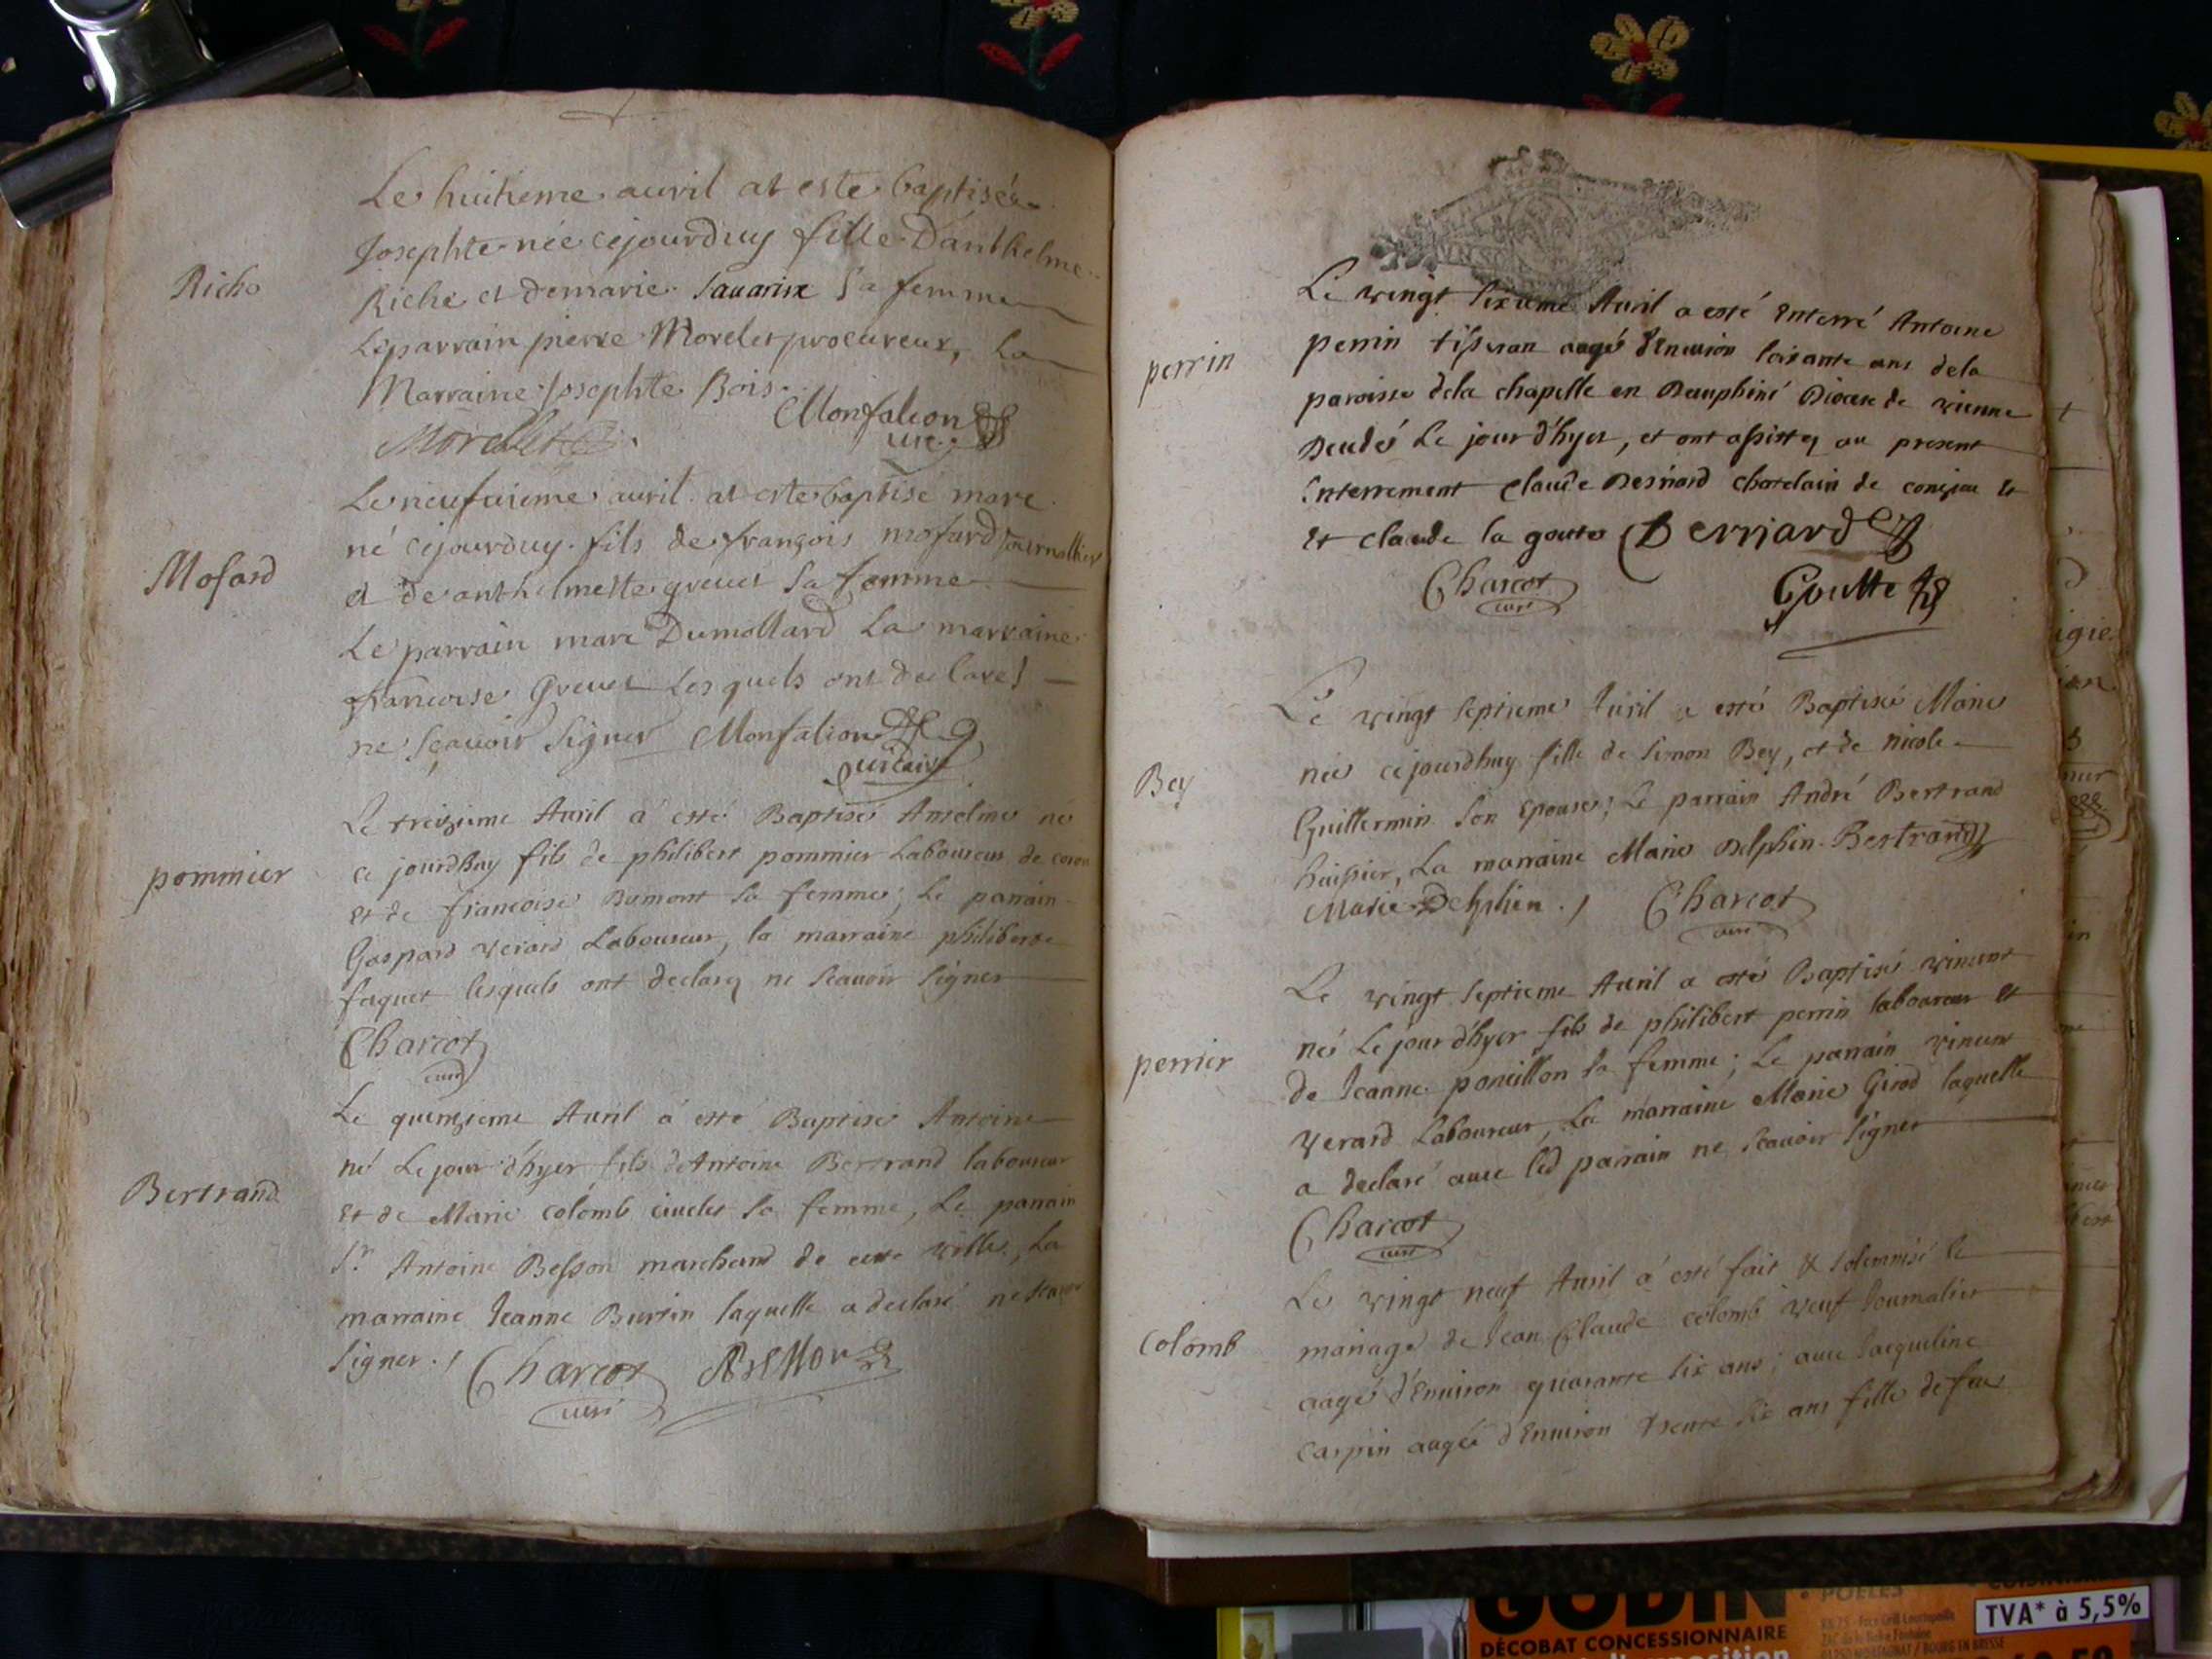 Le huitieme auvril at este baptisée
Josephte née cejourduy fille Danthelme
Riche
Riche et demarie Sauarin Sa femme
Le parrain pierre Morelet procureur, La
Marraine Josephte Bois.
Monfalcon
Morellet
vic.
Le neufuieme auvril at este baptisé marc
né cejourduy fils de françois mofard Journallier
Mofard
et de anthelmette greuet Sa femme
Le parrain marc Dumollard La marraine
francoise Greuet Lesquels ont declares
ne sçauoir Signer Monfalcon
vicaire
Le treizieme Auril a esté Baptisé Anselme né
ce jourdhuy fils de philibert pommier Laboureur de
pommier
et de francoise Dumont Sa femme; Le parrain
Gaspard verard Laboureur, la marraine philiberte
faquet lesquels ont declaré ne Scauoir Signer
Charcot
curé
Le quinzieme Auril a esté Baptisé Antoine
né Le jour d'hyer fils d'Antoine Bertrand laboureur
Bertrand
et de Marie colomb Sa femme, Le parrain
Sr Antoine Besson marchand de cette ville, La
marraine Jeanne Burtin laquelle a declaré ne Scauoir
Signer. / Charcot Besson
curé
Le vingt Sixieme Auril a esté Enterré Antoine
perrin
perrin tisseran aagé d'Enuiron Soixante ans dela
paroisse dela chapelle en Dauphiné Diocese de vienne
Decedé Le jour d'hyer, et ont assisté au present
Enterrement Claude Bernard chatelain de et
et claude la goute Bernard
Charcot Goutte
curé
Le vingt Septieme Auril a esté Baptisée Marie
née ce jourdhuy fille de Simon Bey, et de nicole
Bey
Guillermin Son Epouse; Le parrain André Bertrand
huissier, La marraine Marie Delphin. Bertrand
Marie Delphin. / Charcot
curé
Le vingt Septieme Auril a esté Baptisé vincent
né Le jour d'hyer fils de philibert perrin laboureur et
perrier
de Jeanne poncillon Sa femme; Le parrain vincent
Verard Laboureur, La marraine Marie Girod laquelle
a declaré auec led parrain ne Scauoir Signer
Charcot
curé
Le vingt neuf Auril a esté fait & Solemnisé le
colomb
mariage de Jean Claude colomb veuf Journalier
aagé d'Enuiron quarante Six ans; auec Jacqueline
carpin aagée d'Enuiron trente Six ans fille de feu
GODIN
DÉCOBAT CONCESSIONNAIRE
POÊLES
TVA* à 5,5%